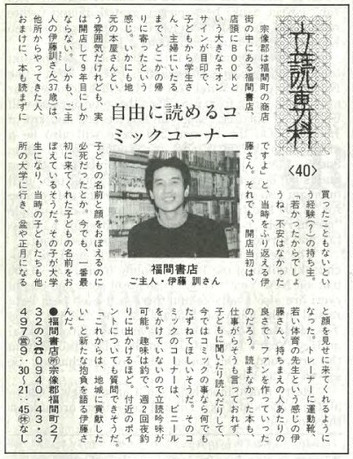 立読専科
〈40〉
自由に読めるコ
ミックコーナー
宗像郡は福間町の商店
街の中にある福間書店
店頭にＢＯＯＫと
いう大きなネオン
サインが目印で、
子どもから学生さ
ん、主婦にいたる
まで、どこかの帰
りに寄ったという
感じ。いかにも地
元の本屋さんとい
う雰囲気だけれども、実
は開店して９年目にしか
ならない。しかも、ご主
人の伊藤訓さん（37歳）は、
他所からやってきた人、
おまけに、本も読まずに
買ったこともないとい
う経験（？）の持ち主。
「若かったからでしょ
うね、不安はなかった
ですよ」と、当時をふり返る伊
藤さん。それでも、開店当初は、
子どもの名前と顔をおぼえるのに
必死だったとか。今でも、一番最
初に来てくれた子どもの名前をお
ぼえているそうだ。その子が大学
生になり、当時の子どもたちも他
所の大学に行き、盆や正月になる
と顔を見せに来てくれるように
なった。トレーナーに運動靴、
若い体育の先生という感じの伊
藤さん、持ちまえの人あたりの
良さで、ファンを作っていった
のだろう。読まなかった本も、
仕事がらそうも言っておれず、
子どもに聞いたり読んだりして、
今ではコミックの事なら何でも
たずねてほしいそうだ。そのコ
ミックのコーナーは、ビニール
をかけていないので立読吟味が
可能。趣味は釣で、週２回夜釣
りに出かけるほど。付近のポイ
ントについても質問できそうだ。
「これからは、地域に貢献した
い」と新たな抱負を語る伊藤さ
んだ。
●福間書店㈲宗像郡福間町２７
３２の３☎０９４０・４３・３
４９７㊡９・３０〜２１・４５㊡なし
福間書店
ご主人・伊藤 訓さん